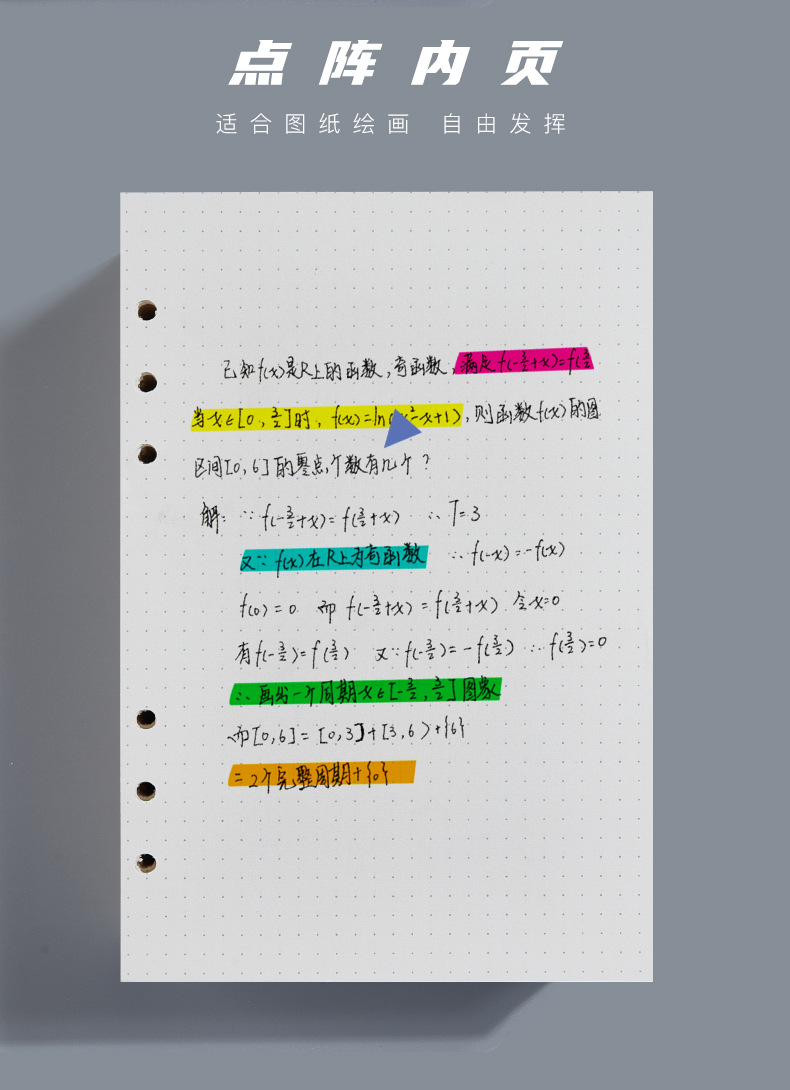 点阵内页
适合图纸绘画 自由发挥
已知f(x)是R上的函数,奇函数,满足f(-3/2+x)=f(3/2
当x∈[0,3/2]时,f(x)=ln(x²-x+1),则函数f(x)的图
区间[0,6]的零点个数有几个?
解:∵f(-3/2+x)=f(3/2+x) ∴T=3
又∵f(x)在R上为奇函数 ∴f(-x)=-f(x)
f(0)=0 而f(-3/2+x)=f(3/2+x) 令x=0
有f(-3/2)=f(3/2) 又∵f(-3/2)=-f(3/2) ∴f(3/2)=0
∴画出一个周期x∈[-3/2,3/2]图象
而[0,6]=[0,3]+[3,6)+{6}
=2个完整周期+{0}